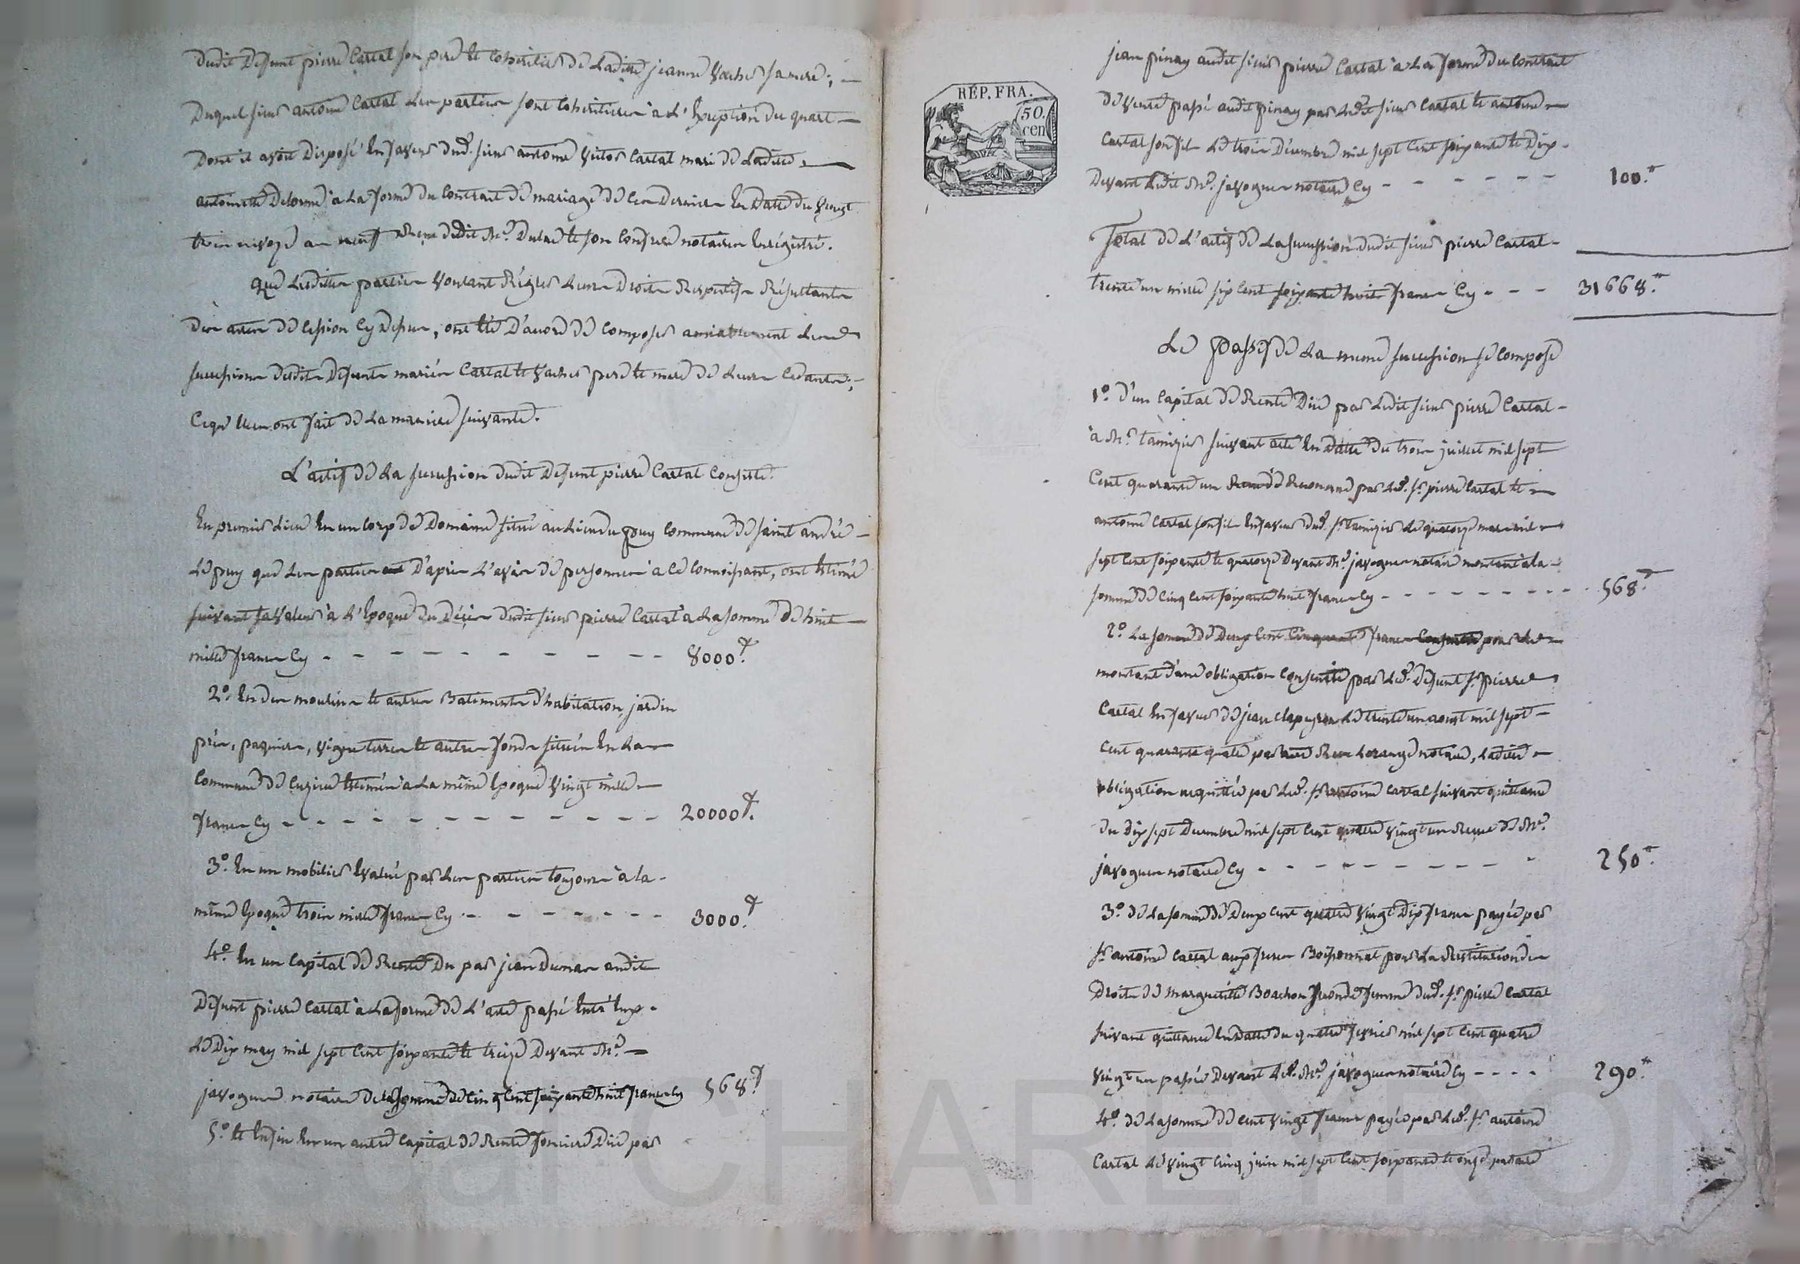 dudit Defunt pierre Cartal son pere et Cohéritier de Ladite jeanne Vacher sa mere; —
Duquel sieur antoine Cartal Les parties sont Cohéritieres à L'Exception du quart —
Dont il avoit Disposé En faveur dud. sieur antoine Victor Cartal mari de Ladite —
antoinette Delorme à La forme du Contrat de mariage de Ces Derniers En Date du Vingt
trois nivose an neuf Reçu dudit Me. Dulac et son Confrere notaires Enrégistré.
Que Lesdites parties Voulant Régler Leurs Droits Respectifs Résultants
Des actes de Cession Cy Dessus, ont été D'acord de Composer amiablement Les
successions desdits Défunts mariés Cartal et Vacher pere et mere de Leurs Cédants; —
Ce qu'elles ont fait de La maniere suivante.
L'actif de La succession dudit Défunt pierre Cartal Consiste.
En premier Lieu En un Corps de Domaine situé au Lieu du puy Commune de saint andré —
Le puy que Les parties D'après L'avis de personnes à Ce Connoissant, ont Estimé
suivant sa Valeur à L'Epoque du Décès dudit sieur pierre Cartal à La somme de huit —
mille francs Cy - - - - - - - - - - 8000.#
2°. En des moulins et autres Batiments d'habitation jardin
prés, paquiers, vigne terres et autres fonds situés En La —
Commune de Cuzieu Estimés à La même Epoque Vingt mille —
francs Cy - - - - - - - - - - 20000.#
3°. En un mobilier Evalué par Les parties toujours à la -
même Epoque trois mille francs Cy - - - - - - 3000.#
4°. En un Capital de Rente Du par jean Dumas audit
Defunt pierre Cartal à La forme de L'acte passé Entr'Eux -
Le Dix may mil sept Cent soixante et treize Devant Me. —
javogues notaire de La somme de Cinq Cent soixante huit francs Cy 568.#
5°. Et Enfin En un autre Capital de Rente fonciere Düe par
REP. FRA.
50. cen
jean pinay audit sieur pierre Cartal à La forme du Contrat
de Vente passé audit pinay par Ledit sieur Cartal et antoine —
Cartal son fils Le trois Décembre mil sept Cent soixante et Dix -
Devant Ledit Me. javogues notaire Cy - - - - - - 100.#
Total de L'actif de La succession dudit sieur pierre Cartal -
trente un mille six Cent soixante huit francs Cy - - - 31668.#
Le passif de La même succession se Compose
1°. D'un Capital de Rente Düe par Ledit sieur pierre Cartal -
à Mr. tamizier suivant acte En Datte du trois juillet mil sept
Cent quarante un Renouvé par Led. sr. pierre Cartal et —
antoine Cartal son fils En faveur dud. sr. tamizier Le quatorze mars mil —
sept Cent soixante et quatorze Devant Me. javogues notaire montant à la -
somme de Cinq Cent soixante huit francs Cy - - - - - - - - - 568.#
2°. La somme de Deux Cent Cinquante francs pour Le —
montant d'une obligation Consentie par Led. Défunt sr. pierre
Cartal En faveur de jean Clapeyron Le trente un aoust mil sept —
Cent quarante quatre notaire, Ladite —
obligation acquittée par Led. sr. antoine Cartal suivant quittance
du Dix sept Decembre mil sept Cent quatre Vingt un Reçue de Me.
javogues notaire Cy - - - - - - - - 250.#
3°. de La somme de Deux Cent quatre Vingt Dix francs payée par
sr. antoine Cartal aux freres Boissonnat pour La Restitution des
Droits de Margueritte Boachon seconde femme dud. sr. pierre Cartal
suivant quittance En Datte du quatre fevrier mil sept Cent quatre
Vingt un passée Devant Led. Me. javogues notaire Cy - - - - 290.#
4°. de La somme de Cent Vingt francs payée par Led. sr. antoine
Cartal Le Vingt Cinq juin mil sept Cent soixante et onze
CHAREYRON